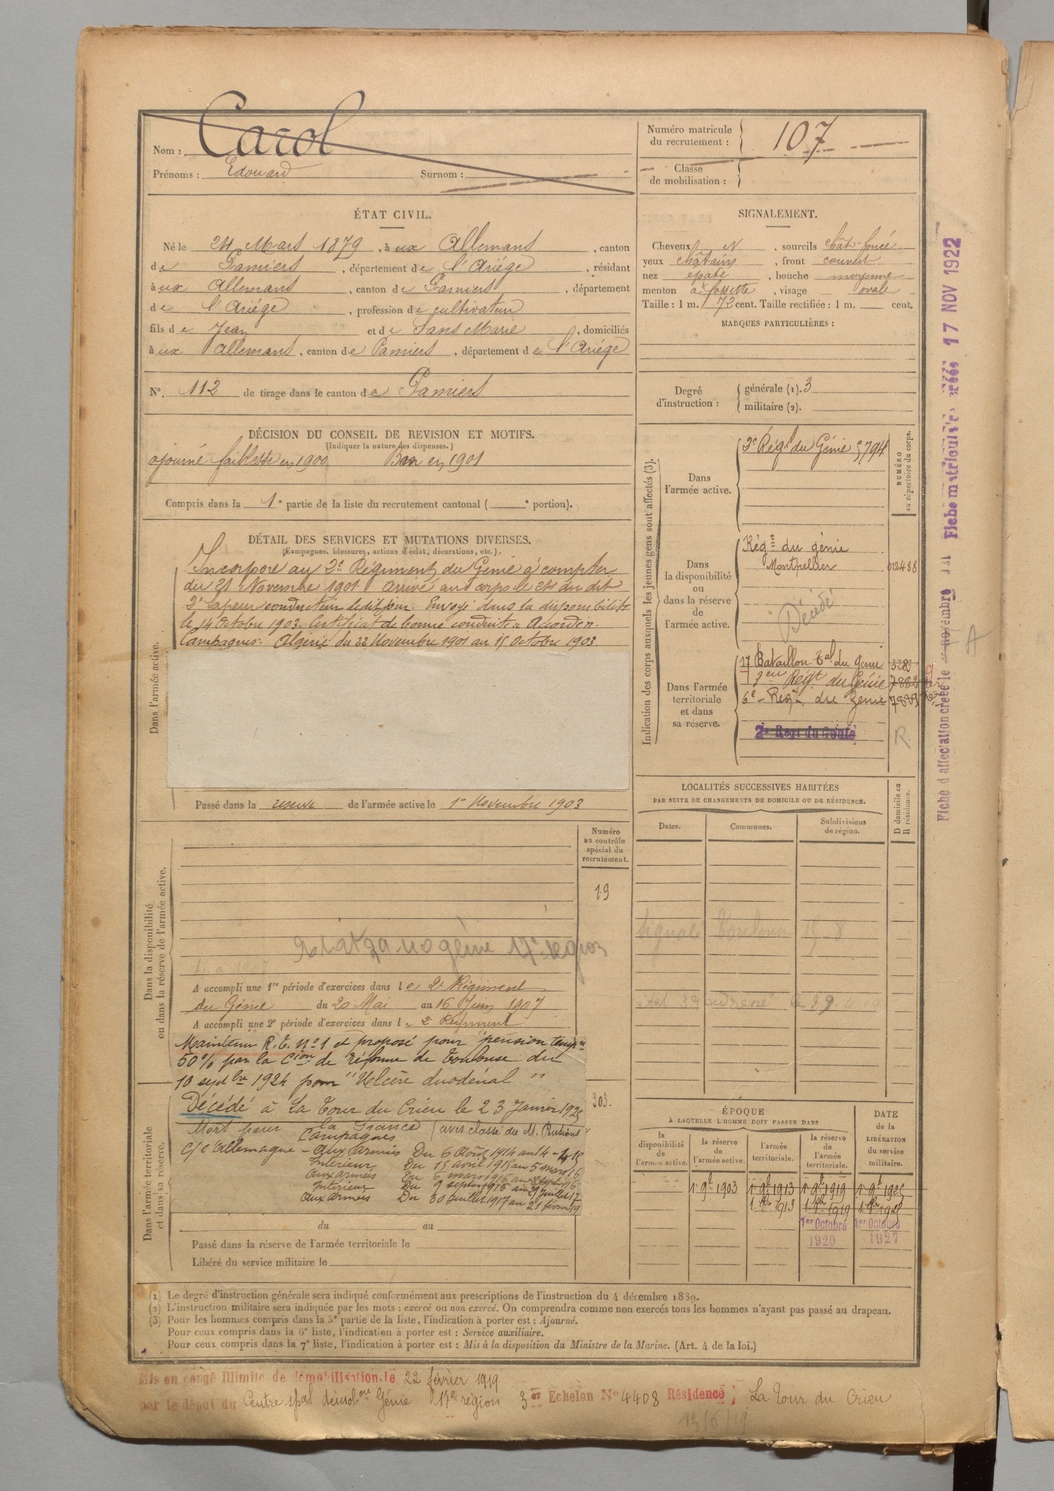 Nom : Carol
Prénoms : Edouard Surnom :
Numéro matricule du recrutement : 107
Classe de mobilisation :
ÉTAT CIVIL.
Né le 24 Mars 1879, à ux Allemans, canton
de Pamiers, département de l'Ariége, résidant
à ux Allemans, canton de Pamiers, département
de l'Ariége, profession de cultivateur
fils de Jean et de Sans Marie, domiciliés
à ux Allemans, canton de Pamiers, département de l'Ariége
N°. 112 de tirage dans le canton de Pamiers
SIGNALEMENT.
Cheveux N, sourcils chât-foncé
yeux châtains, front couvert
nez épaté, bouche moyenne
menton à fossette, visage ovale
Taille : 1 m. 73 cent. Taille rectifiée : 1 m. cent.
MARQUES PARTICULIÈRES :
Degré d'instruction : générale (1). 3
militaire (2).
DÉCISION DU CONSEIL DE REVISION ET MOTIFS.
(Indiquer la nature des dispenses.)
ajourné faiblesse en 1900 Bon en 1901
Compris dans la 1e partie de la liste du recrutement cantonal ( e portion).
DÉTAIL DES SERVICES ET MUTATIONS DIVERSES.
(Campagnes, blessures, actions d'éclat, décorations, etc.).
Dans l'armée active.
Incorporé au 2e Régiment du Génie à compter
du 21 Novembre 1901 Arrivé au corps le 21 du dit
2e Sapeur conducteur le dit jour. Envoyé dans la disponibilité
le 14 Octobre 1903. Certificat de bonne conduite Accordé.
Campagnes: Algérie du 22 Novembre 1901 au 15 Octobre 1903
Passé dans la reserve de l'armée active le 1er Novembre 1903
Indication des corps auxquels les jeunes gens sont affectés (3).
NUMÉRO au répertoire du corps.
Dans l'armée active.
2e Régt du Génie 5794
Dans la disponibilité ou dans la réserve de l'armée active.
Régt du génie
Montpellier
Décédé
Dans l'armée territoriale et dans sa réserve.
17 Bataillon Tal du Génie
Régt du Génie
6e Régt du Génie
2e Regt du Génie
R
Fiche matricule créée 17 NOV 1922
Fiche d'affectation créée le novembre
LOCALITÉS SUCCESSIVES HABITÉES
PAR SUITE DE CHANGEMENTS DE DOMICILE OU DE RÉSIDENCE.
D domicile ou R résidence.
Dates. Communes. Subdivisions de région.
Dans la disponibilité ou dans la réserve de l'armée active.
Numéro au contrôle spécial du recrutement.
19
génie 17e région
A accompli une 1re période d'exercices dans le 2e Régiment
du Génie du 20 Mai au 16 Juin 1907
A accompli une 2e période d'exercices dans le 2e Régiment
Maintenu R.E. N°1 et proposé pour pension temp
50% par la Cion de réforme de Toulouse du
10 septbre 1924 pour "Ulcère duodénal"
303.
Dans l'armée territoriale et dans sa réserve.
Décédé à La Tour du Crieu le 23 Janvier
Mort pour la France (avis classé du M.
Campagnes
c/e l'Allemagne - aux armées Du 6 Août 1914 au
Intérieur Du 15 avril 1915 au 5 mars 16
aux armées
Intérieur
aux armées Du 30 juillet 1917 au 21 février 19
du au
Passé dans la réserve de l'armée territoriale le
Libéré du service militaire le
ÉPOQUE
À LAQUELLE L'HOMME DOIT PASSER DANS
DATE de la LIBÉRATION du service militaire.
la disponibilité de l'armée active. la réserve de l'armée active. l'armée territoriale. la réserve de l'armée territoriale.
1er 9bre 1903 1er 9bre 1913 1er 9bre 1919
1913 1919
1er Octobre 1er Octobre
1920 1927
(1) Le degré d'instruction générale sera indiqué conformément aux prescriptions de l'instruction du 4 décembre 1889.
(2) L'instruction militaire sera indiquée par les mots : exercé ou non exercé. On comprendra comme non exercés tous les hommes n'ayant pas passé au drapeau.
(3) Pour les hommes compris dans la 5e partie de la liste, l'indication à porter est : Ajourné.
Pour ceux compris dans la 6e liste, l'indication à porter est : Service auxiliaire.
Pour ceux compris dans la 7e liste, l'indication à porter est : Mis à la disposition du Ministre de la Marine. (Art. 4 de la loi.)
Mis en congé illimité de démobilisation le 22 février 1919
par le dépôt du Centre spal démobon Génie 17e région 3e Echelon N° 4408 Résidence : La Tour du Crieu